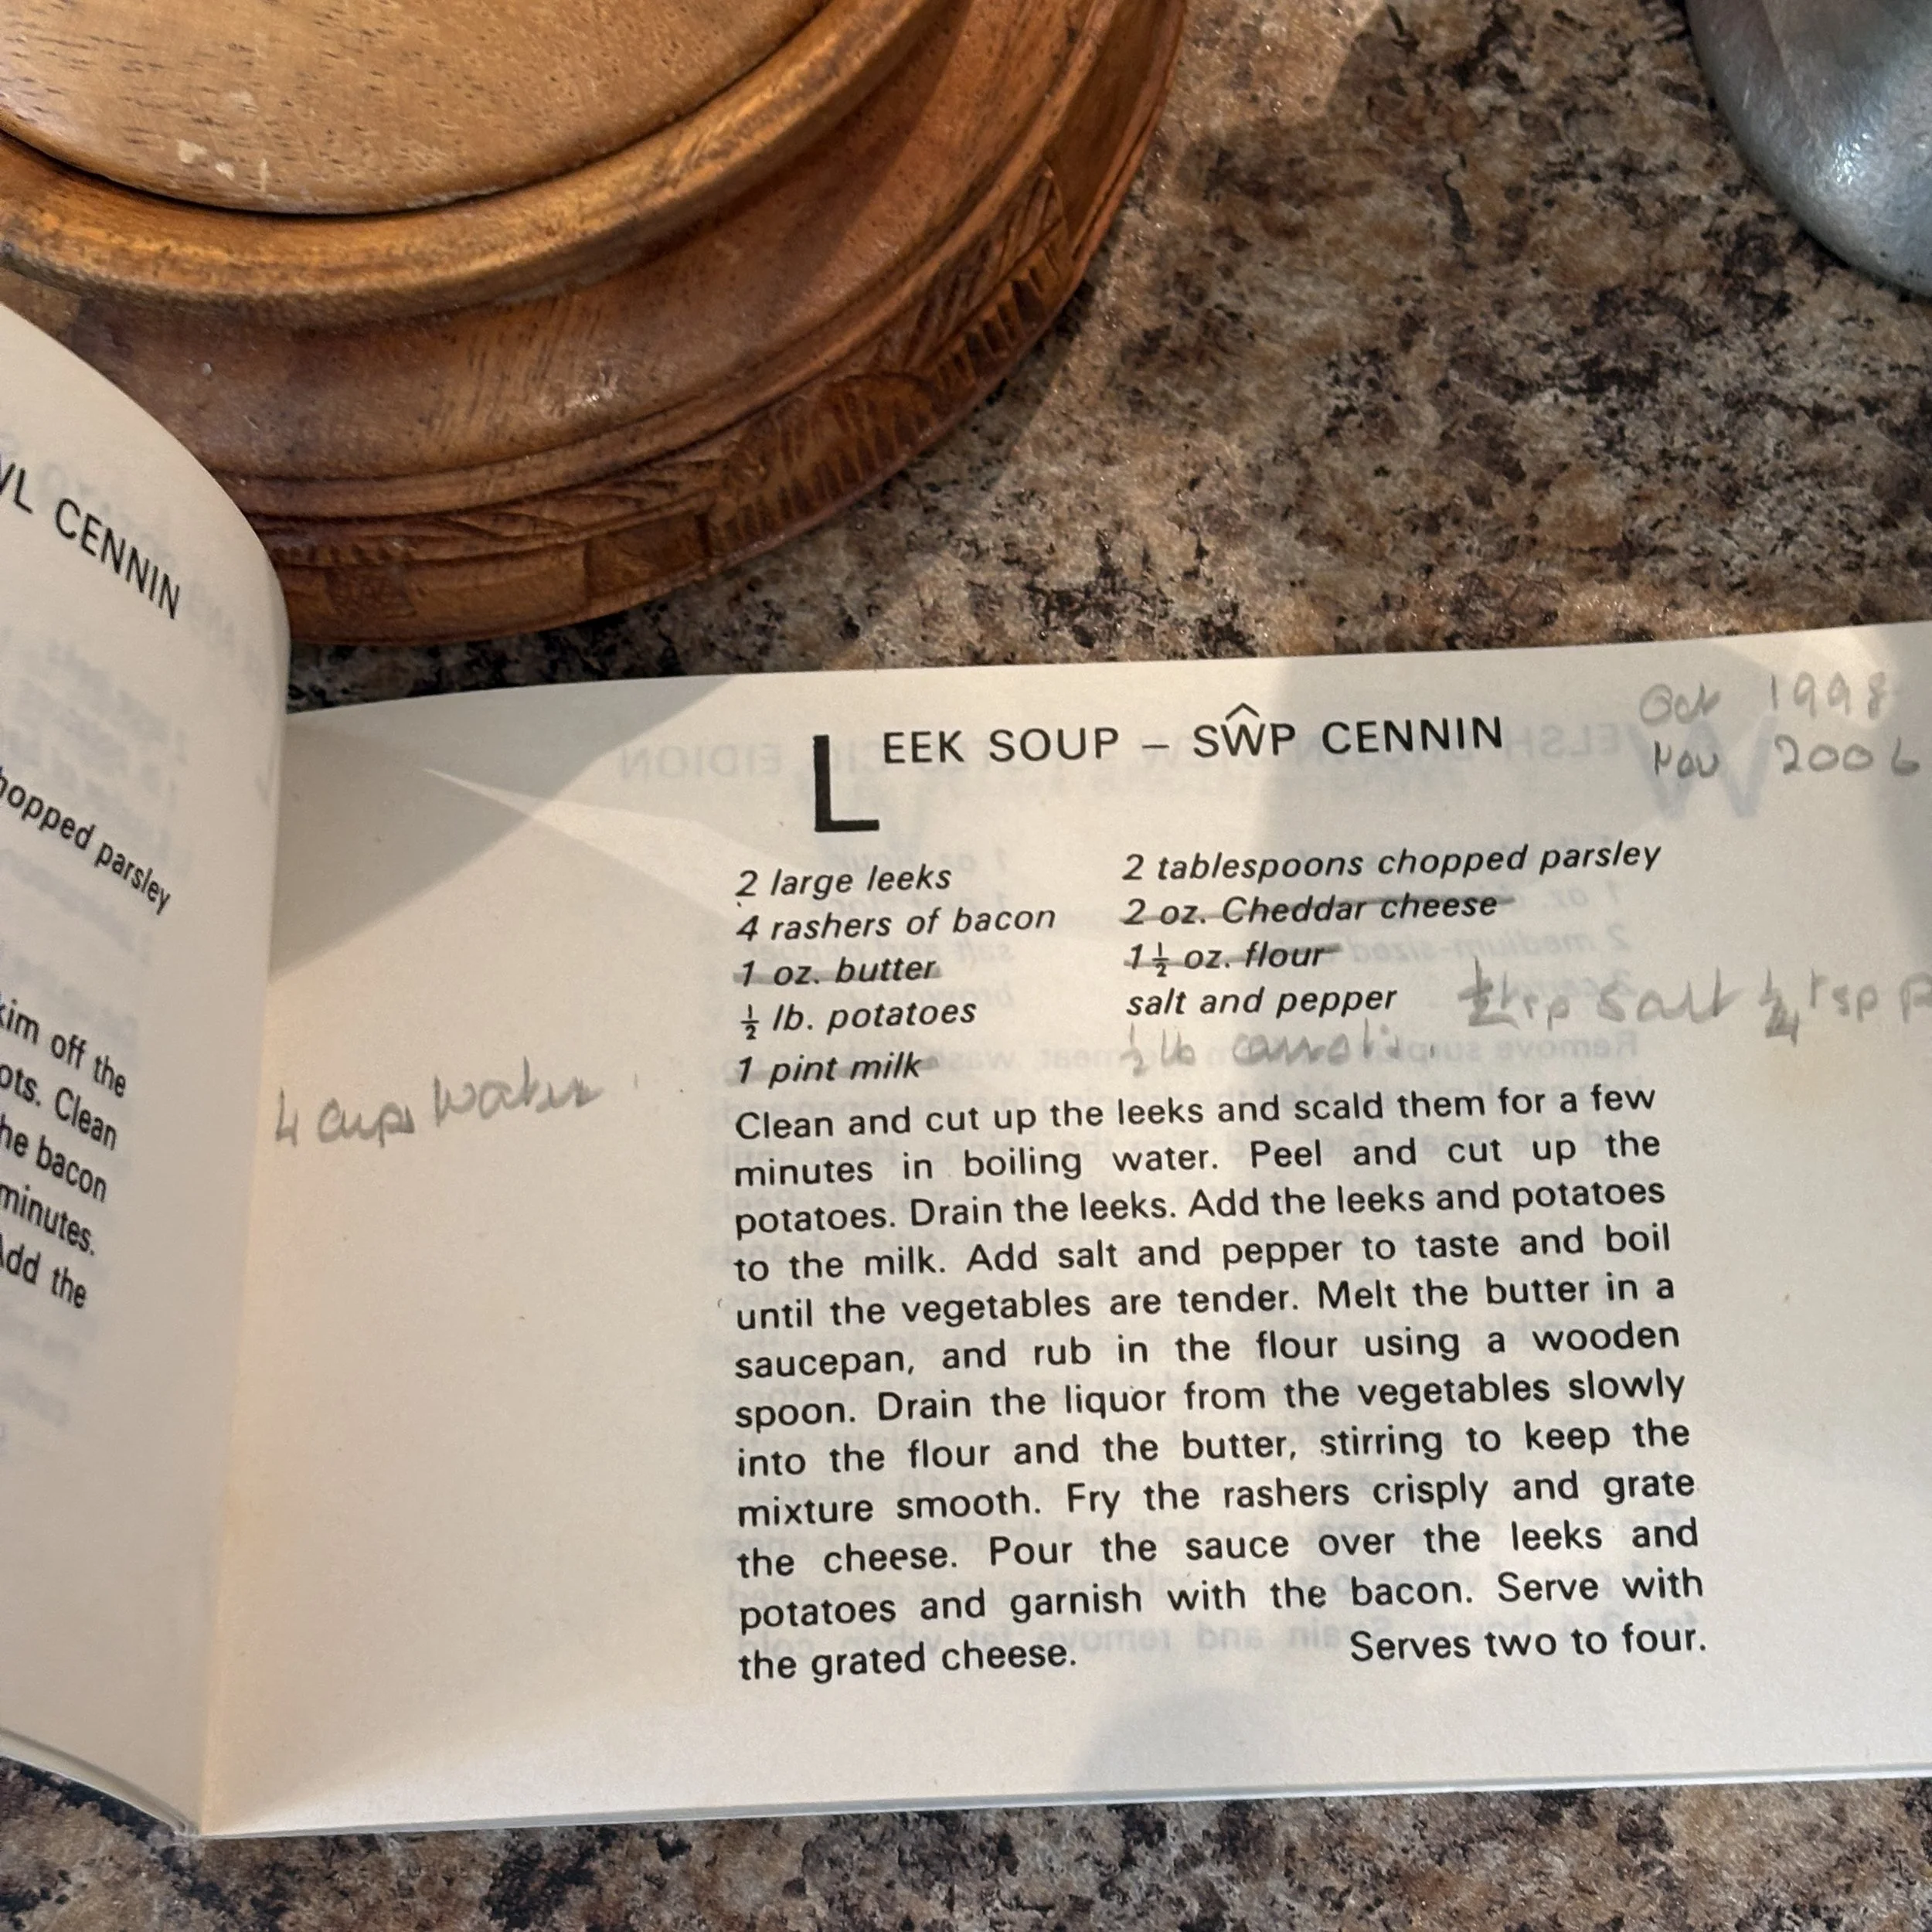 CENNIN
chopped parsley
off the
Clean
bacon
minutes.
Add the
LEEK SOUP – SŴP CENNIN
Oct 1998
Nov 2006
2 large leeks
4 rashers of bacon
1 oz. butter
½ lb. potatoes
1 pint milk
4 cups water
2 tablespoons chopped parsley
2 oz. Cheddar cheese
1½ oz. flour
salt and pepper
½ tsp salt ¼ tsp p
½ lb carrots.
Clean and cut up the leeks and scald them for a few
minutes in boiling water. Peel and cut up the
potatoes. Drain the leeks. Add the leeks and potatoes
to the milk. Add salt and pepper to taste and boil
until the vegetables are tender. Melt the butter in a
saucepan, and rub in the flour using a wooden
spoon. Drain the liquor from the vegetables slowly
into the flour and the butter, stirring to keep the
mixture smooth. Fry the rashers crisply and grate
the cheese. Pour the sauce over the leeks and
potatoes and garnish with the bacon. Serve with
the grated cheese. Serves two to four.